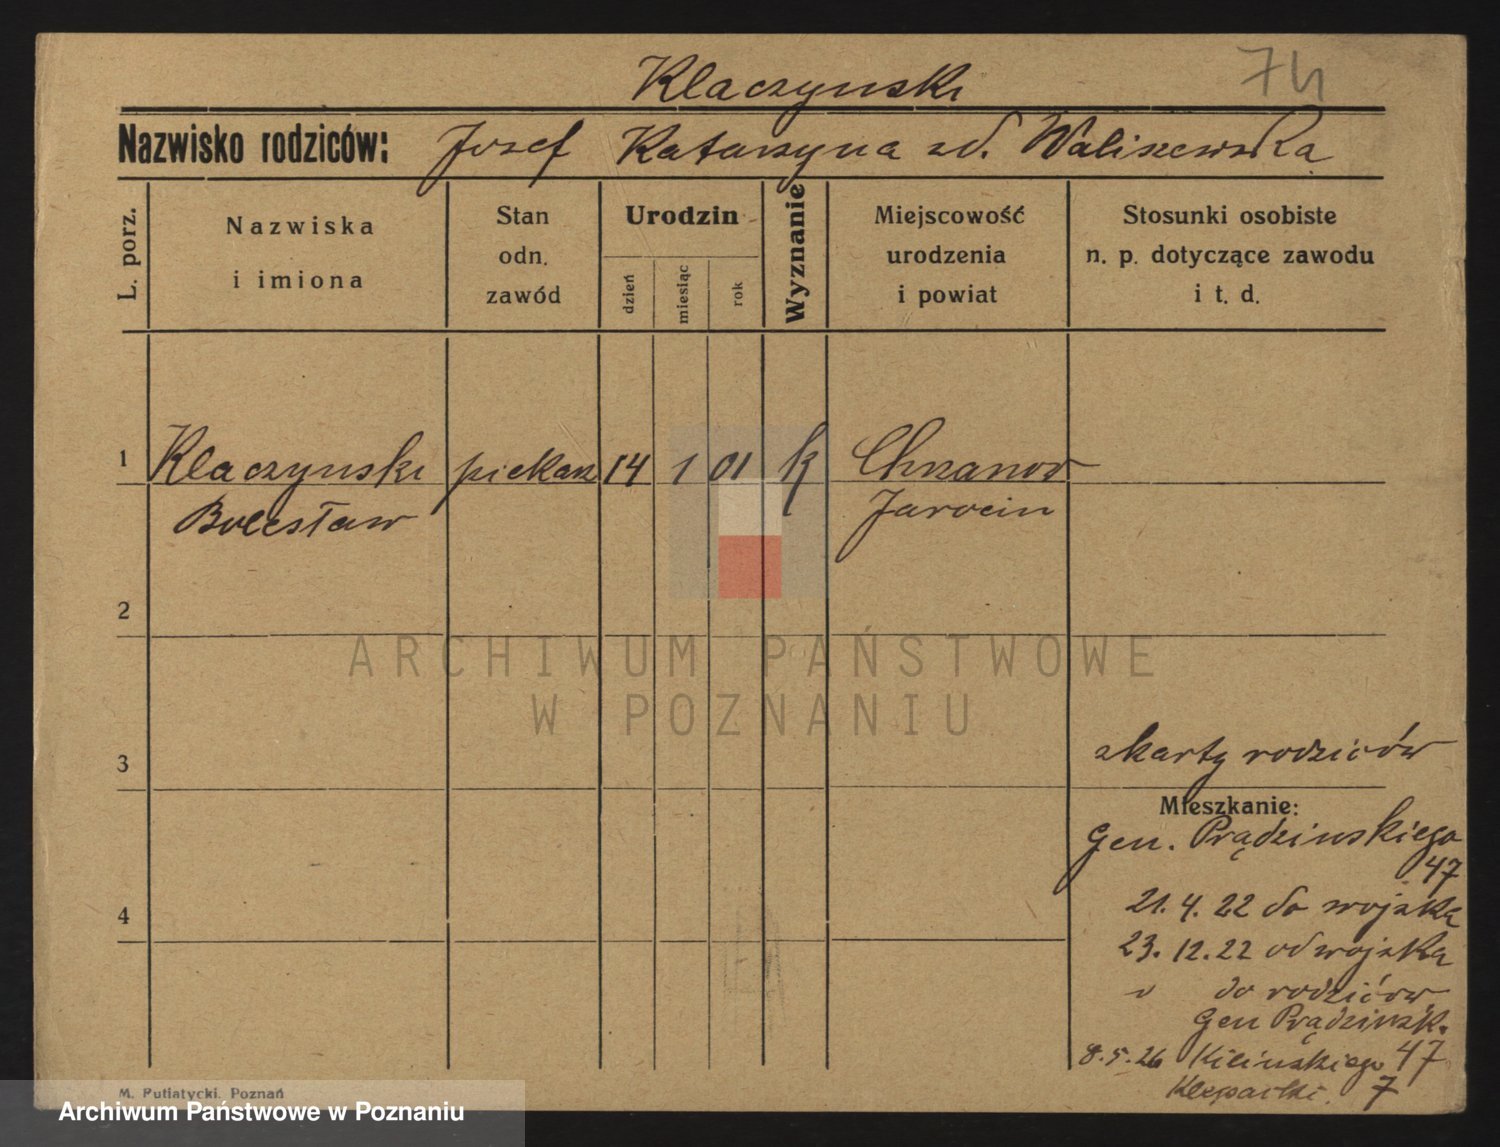 Klaczynski 74
Nazwisko rodziców: Josef Katarzyna zd. Waliszewska
L. porz.
Nazwiska
i imiona
Stan
odn.
zawód
Urodzin
dzień
miesiąc
rok
Wyznanie
Miejscowość
urodzenia
i powiat
Stosunki osobiste
n. p. dotyczące zawodu
i t. d.
1 Klaczynski piekarz 14 1 01 k Chrzanow
Bolesław Jarocin
2
ARCHIWUM PAŃSTWOWE
W POZNANIU
3 z karty rodziców
Mieszkanie:
Gen. Prądzinskiego
47
4 21. 4. 22 do wojska
23. 12. 22 od wojska
do rodziców
Gen Prądzinsk.
8.5.26 Kilinskiego 47
7
M. Putiatycki, Poznań
Archiwum Państwowe w Poznaniu